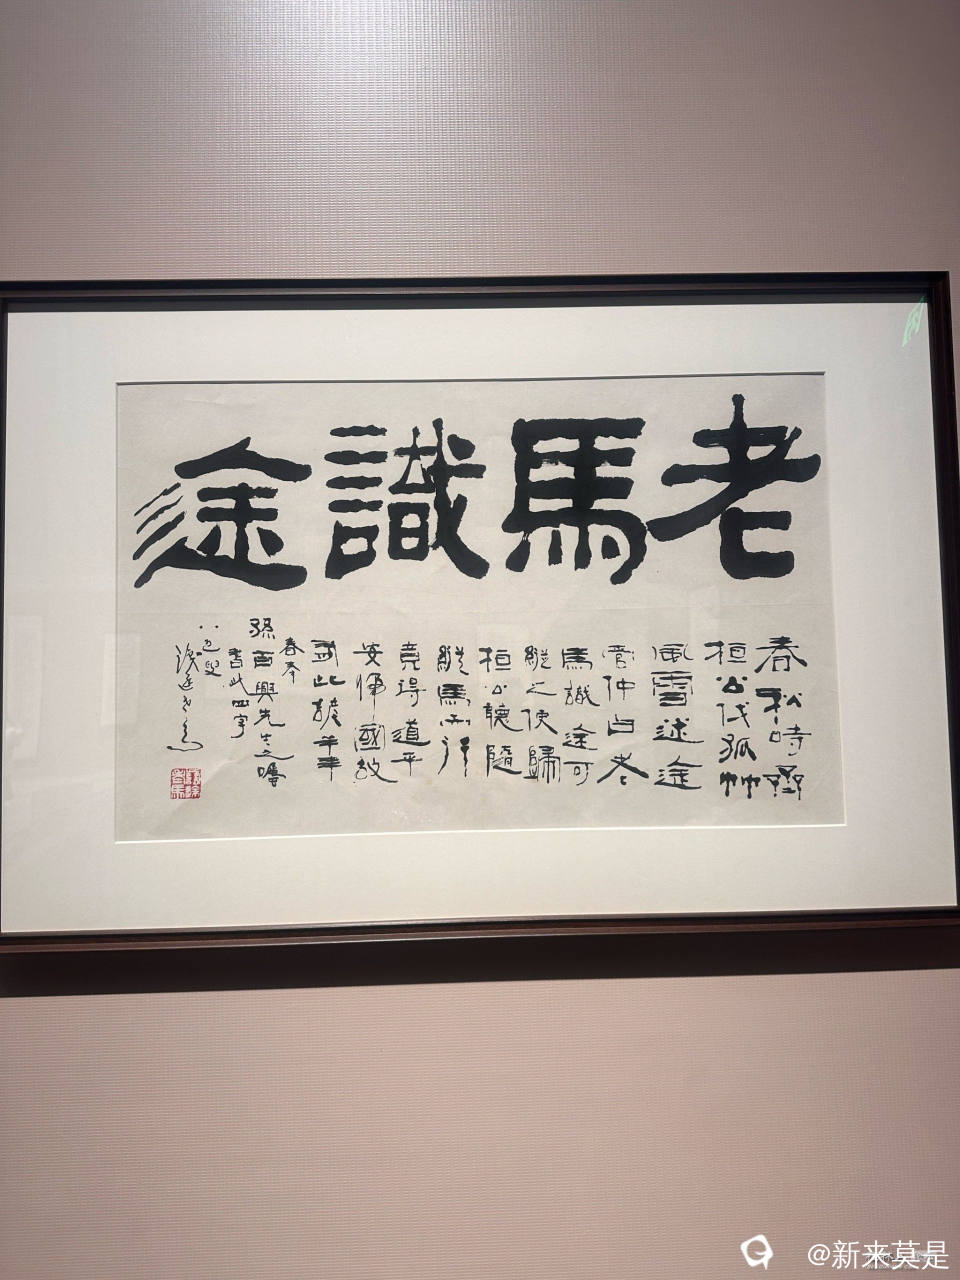 老馬識途
春秋時齊
桓公伐孤竹
風雪迷途
管仲曰老
馬識途可
縱之使歸
桓公聽隨
縱馬而行
竟得道平
安歸國故
有此語辛
春奉
孫百興先生之囑
書此四字
八五叟
@新来莫是